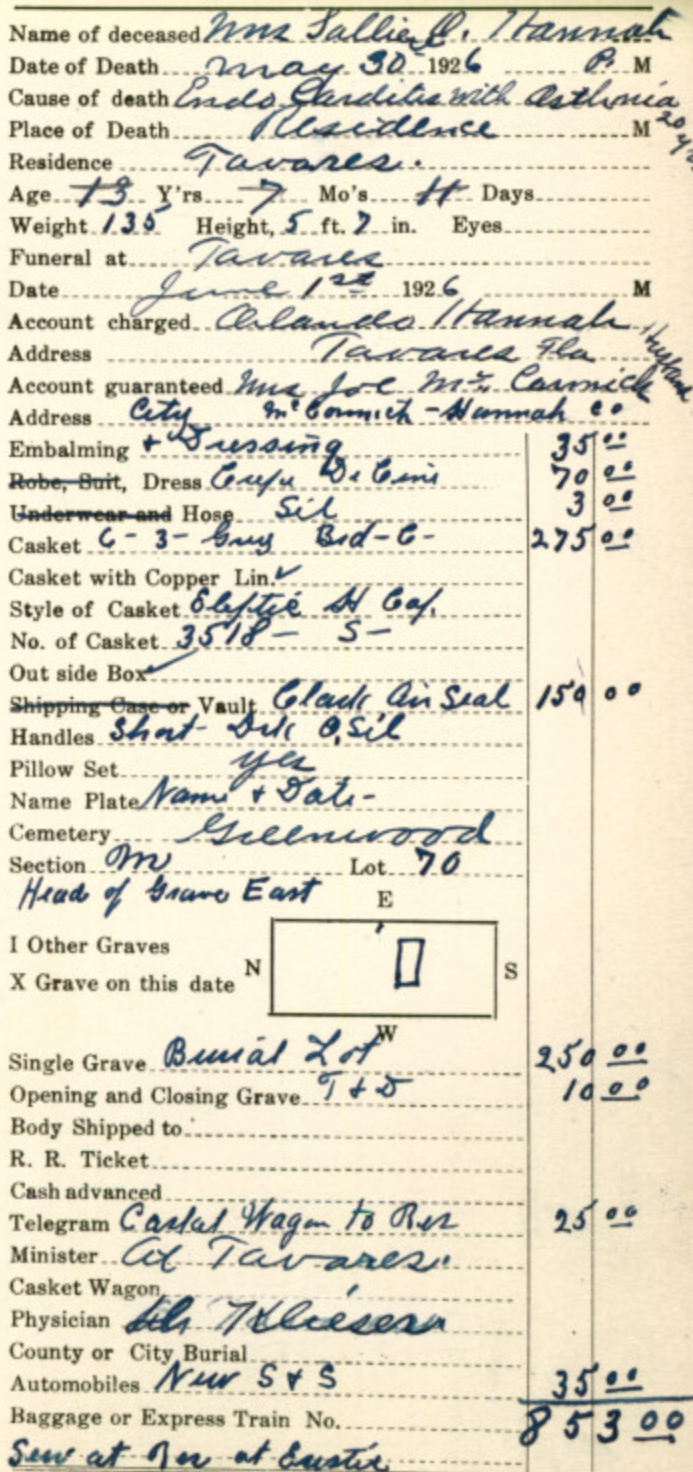 Name of deceased Mrs Sallie O. Hannah
Date of Death May 30 1926 P. M
Cause of death Endo Carditis with Asthmia 20 yrs
Place of Death Residence M
Residence Tavares.
Age 73 Y'rs 7 Mo's 11 Days
Weight 135 Height, 5 ft. 7 in. Eyes
Funeral at Tavares
Date June 1st 1926 M
Account charged Orlando Hannah Husband
Address Tavares Fla
Account guaranteed Mrs Joe Mc Cormick
Address City McCormick-Hannah Co
Embalming + Dressing 35 00
Robe, Suit, Dress Crepe De Cine 70 00
Underwear and Hose Sil 3 00
Casket C-3- Grey Brd-C- 275 00
Casket with Copper Lin. ✓
Style of Casket Eleptic Cap.
No. of Casket 3518 - S-
Out side Box ✓
Shipping Case or Vault Clark Air Seal 150 00
Handles Short- Drk O. Sil
Pillow Set yes
Name Plate Name + Date-
Cemetery Greenwood
Section M Lot 70
Head of Grave East
E
I Other Graves
N S
X Grave on this date
W
Single Grave Burial Lot 250 00
Opening and Closing Grave T + D 10 00
Body Shipped to
R. R. Ticket
Cash advanced
Telegram Casket Wagon to Res 25 00
Minister At Tavares.
Casket Wagon
Physician
County or City Burial
Automobiles New S + S 35 00
Baggage or Express Train No. 853 00
Serv at Res at Eustis